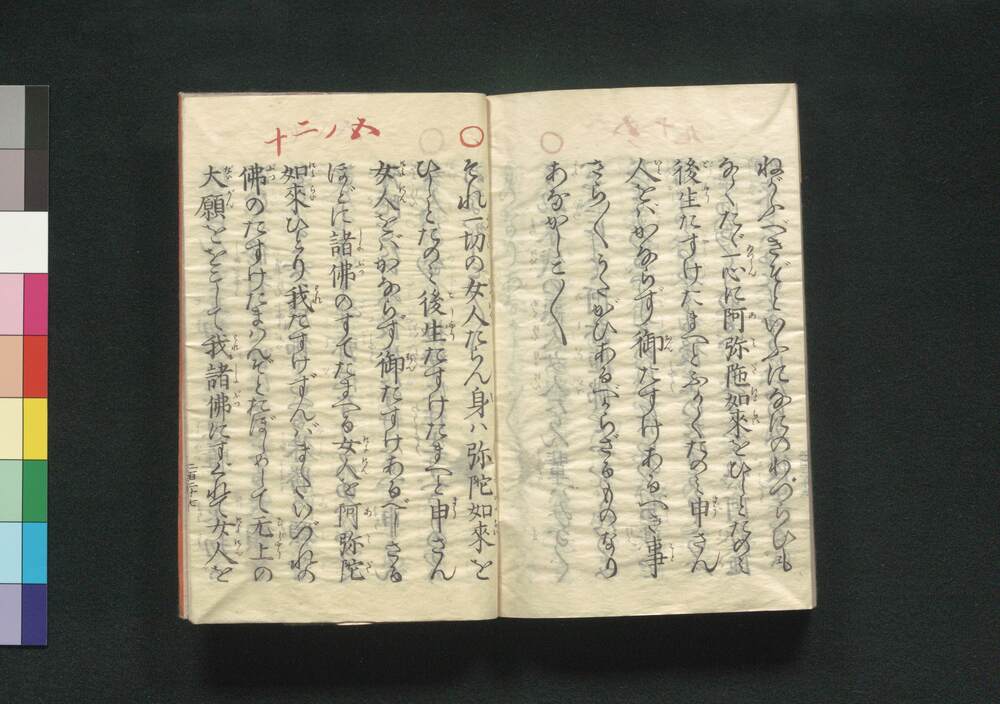 ねがふべきぞといふになにのわづらひも
なくたゞ一心に阿弥陀如來をひしとたのみ
後生たすけたまへとふかくたのミ申さん
人をバかならず御たすけあるべき事
さら〳〵うたがひあるべからざるものなり
あなかしこ〳〵
五ノ二十
○
それ一切の女人たらん身ハ弥陀如來を
ひしとたのミ後生たすけたまへと申さん
女人をバかならず御たすけあるべしさる
ほどに諸佛のすてたまへる女人を阿弥陀
如來ひとり我たすけずんバまたいづれの
佛のたすけたまはんぞとおぼしめして无上の
大願ををこして我諸佛にすぐれて女人を
二百二十七